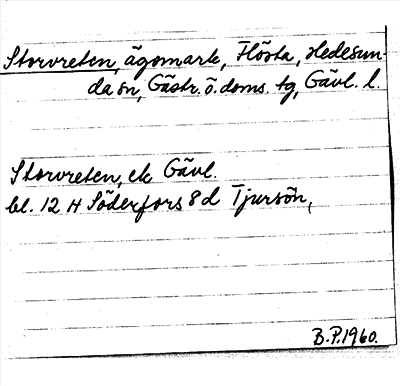 Storvreten, ägomark, Hösta, Hedesun-
da sn, Gästr. ö. doms. tg, Gävl. l.
Storvreten, ek Gävl.
bl. 12 H Söderfors 8 d Tjursön,
B.P. 1960.